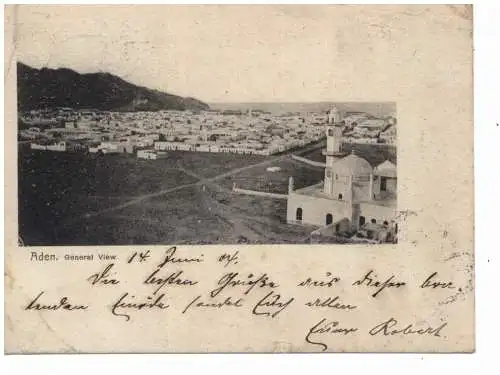 Aden. General View. 14 Juni 04.
Die besten Grüße aus dieser bra-
tenden Einöde sendet Euch allen
Euer Robert